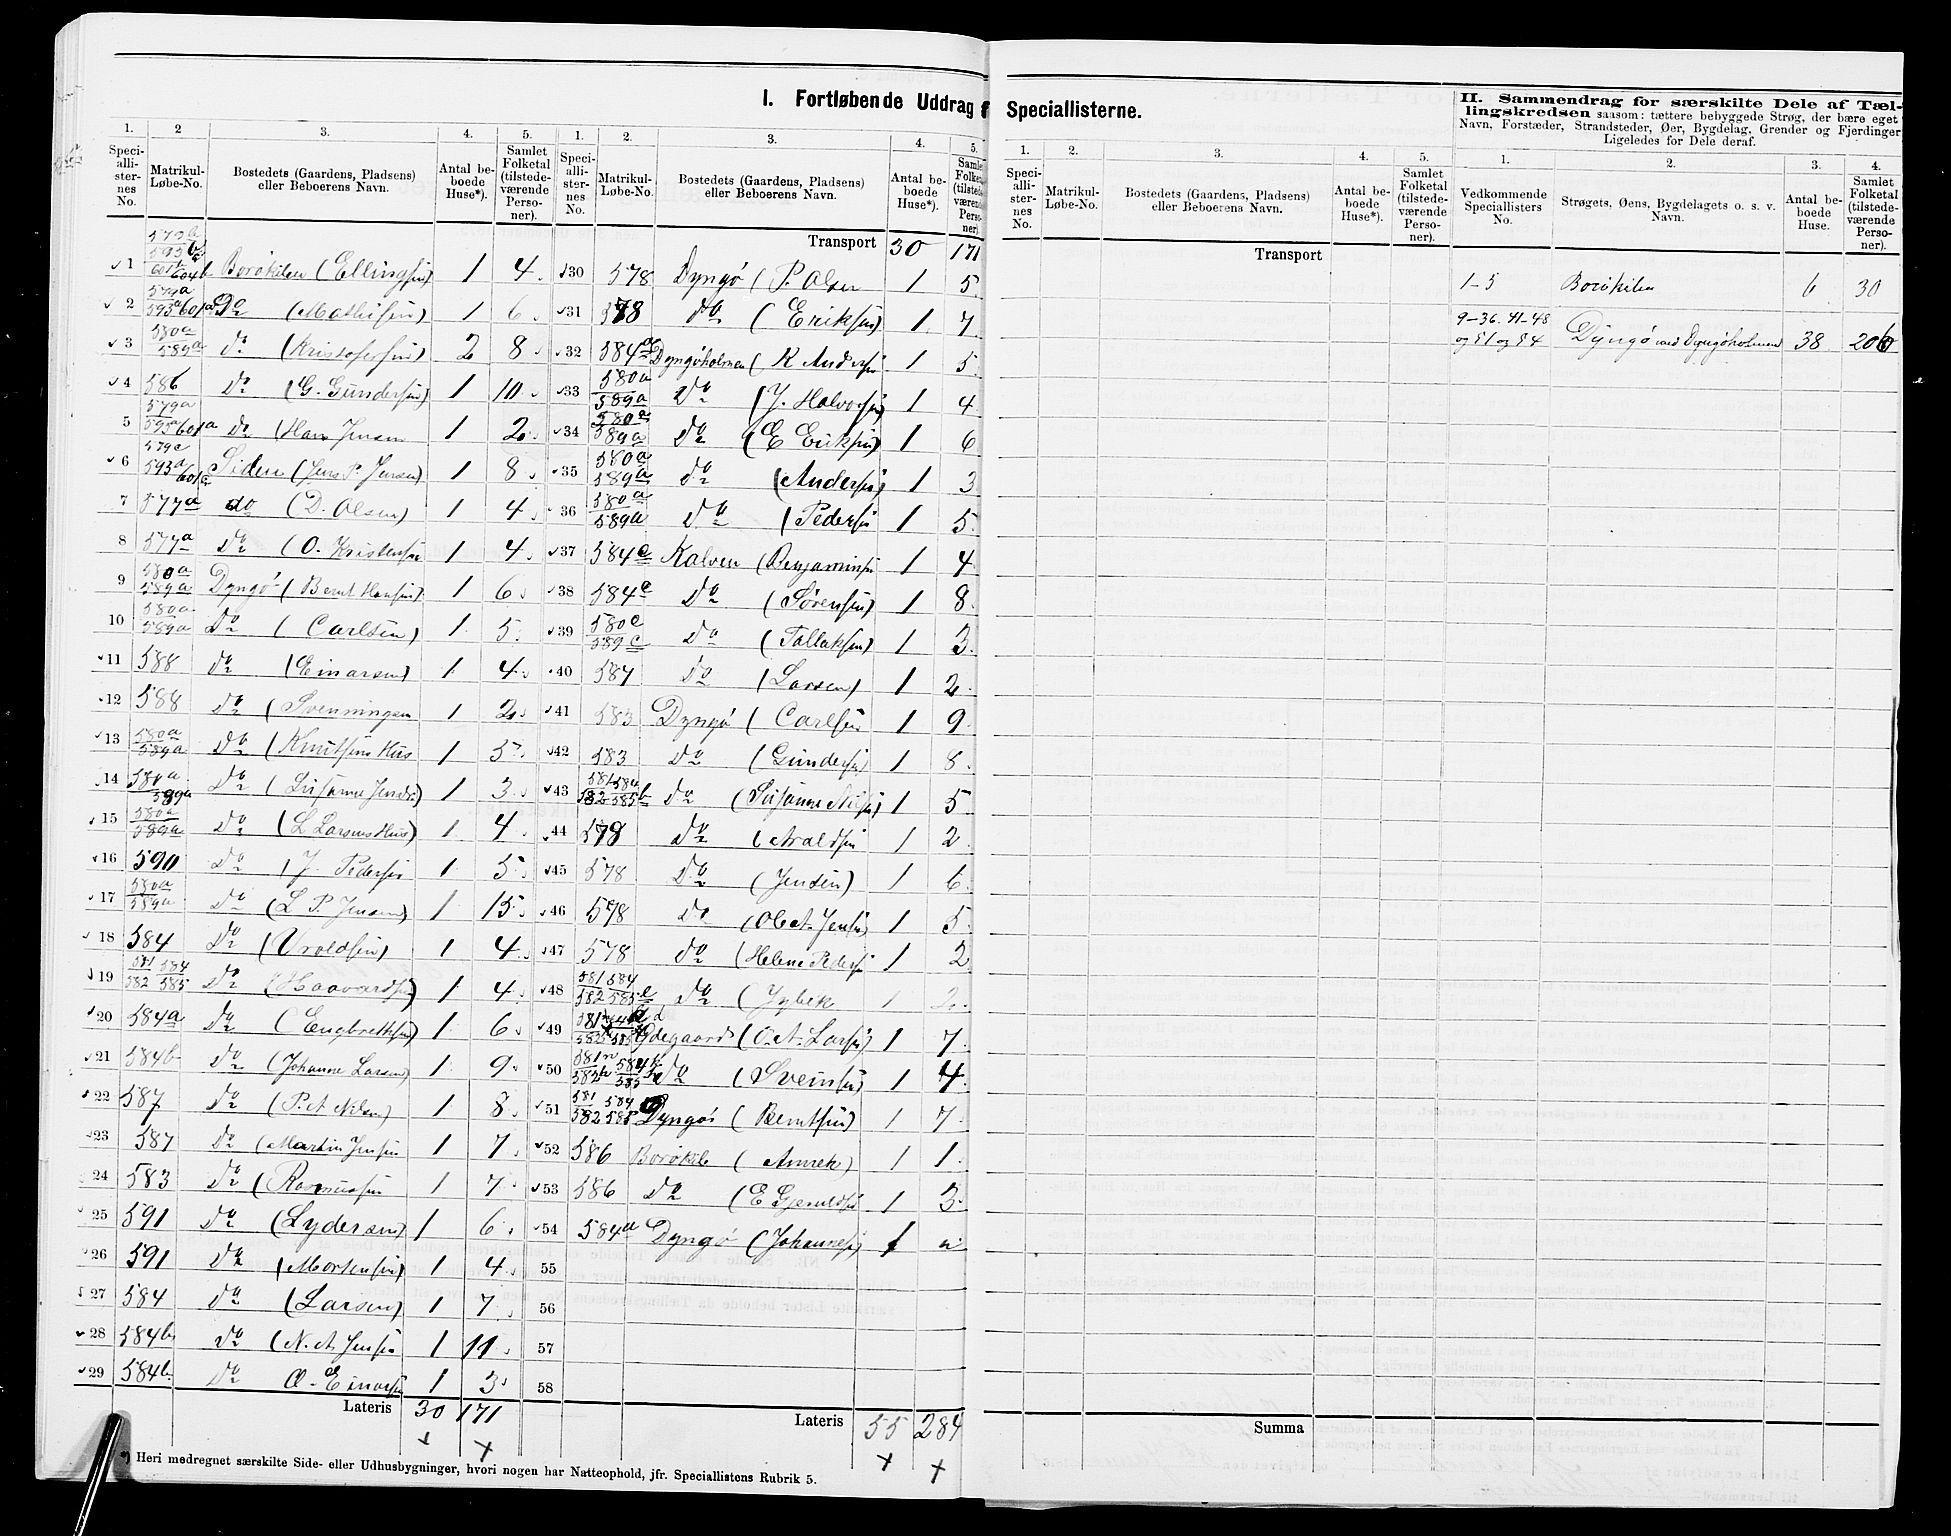 I. Fortløbende Uddrag f
1. 2 3. 4. 5. 1. 2. 3. 4. 5.
Speci-alli-ster-nes No. Matrikul-Løbe-No. Bostedets (Gaardens, Pladsens) eller Beboerens Navn. Antal be-boede Huse*). Samlet Folketal (tilstede-værende Perso-ner). Speci-alli-ster-nes No. Matrikul-Løbe-No. Bostedets (Gaardens, Pladsens) eller Beboerens Navn. Antal be-boede Huse*). Samle Folket (tilsted værend Perso- ner)
Transport 30 171
1 Borøkilen (Ellingsen) 1 4
2 Do (Mathisen) 1 6
3 580a 589a do (Kristofersen) 2 8
4 586 do (G. Gundersen) 1 10
5 do (Hans Jensen 1 2
6 Siden (Jens P. Jensen) 1 8
7 577a do (D. Olsen) 1 4
8 577a do (O. Kristensen 1 4
9 580a 589a Dyngø (Bernt Hansen) 1 6
10 580a 589a do (Carlsen) 1 5
11 588 do (Einarsen) 1 4
12 588 do (Svenningsen 1 2
13 580a 589a do (Knutsens Hus 1 5
14 580a 589a do (Susanne Jensen) 1 3
15 580a 589a do (L. Larsens Hus) 1 4
16 590 do (J. Pedersen 1 5
17 580a 589a do (L. P. Jensen) 1 15
18 584 do (Vroldsen) 1 4
19 581 584 582 585 do (Haavardsen) 1 4
20 584a do (Engbretsen) 1 6
21 584b do (Johanne Larsen) 1 9
22 587 do (P. A. Nilsen) 1 8
23 587 do (Martin Jensen 1 7
24 583 do (Rasmussen 1 7
25 591 do (Lydersen) 1 6
26 591 do (Mortensen) 1 4
27 584 do (Larsen) 1 7
28 584b do (N. A. Jensen 1 11
29 584b do O. Einarsen 1 3
Lateris 30 171
30 578 Dyngø (P. Olsen 1 5
31 578 do (Eriksen) 1 7
32 584a Dyngøholmen (K Andersen 1 5
33 580a 589a do (J. Halvorsen) 1 4
34 580a 589a do (E Eriksen) 1 6
35 580a 589a do (Andersen) 1 3
36 580a 589a do (Pedersen 1 5
37 584c Kalven (Benjaminsen 1 4
38 584c do (Sørensen) 1 8
39 580c 589c do (Tallaksen) 1 3
40 587 do (Larsen) 1 2
41 583 Dyngø (Carlsen 1 9
42 583 do (Gundersen) 1 8
43 do (Susanne Nilsen) 1 5
44 578 do (Aroldsen 1 2
45 578 do (Jensen) 1 6
46 578 do (Ole A. Jensen) 1 5
47 578 do (Helene Pedersen 1 2
48 581 584 582 585 do 1 2
49 Ødegaard (O. A. Larsen) 1 7
50 do (Svensen) 1 4
51 581 584 582 585 Dyngø (Berntsen) 1 7
52 586 Borøkil (Annek) 1 1
53 586 do (E Gjeruldsen 1 3
54 584a Dyngø (Johannesen) 1
55
56
57
58
Lateris 55 284
*) Heri medregnet særskilte Side- eller Udhusbygninger, hvori nogen har Natteophold, jfr. Speciallistens Rubrik 5.
Speciallisterne.
1. 2. 3. 4. 5.
Speci-alli-ster-nes No. Matrikul-Løbe-No. Bostedets (Gaardens, Pladsens) eller Beboerens Navn. Antal be-boede Huse*). Samlet Folketal (tilstede-værende Perso-ner).
Transport
Summa
II. Sammendrag for særskilte Dele af Tæl-
lingskredsen saasom: tættere bebyggede Strøg, der bære eget
Navn, Forstæder, Strandsteder, Øer, Bygdelag, Grender og Fjerdinger
Ligeledes for Dele deraf.
1. 2. 3. 4.
Vedkommende Speciallisters No. Strøgets, Øens, Bygdelagets o. s. v. Navn. Antal be-boede Huse. Samlet Folketal (tilstede-værende Perso-ner).
1-5 Borøkilen 6 30
9-36. 41-48
og 51 og 54 Dyngø med Dyngøholmen 38 206